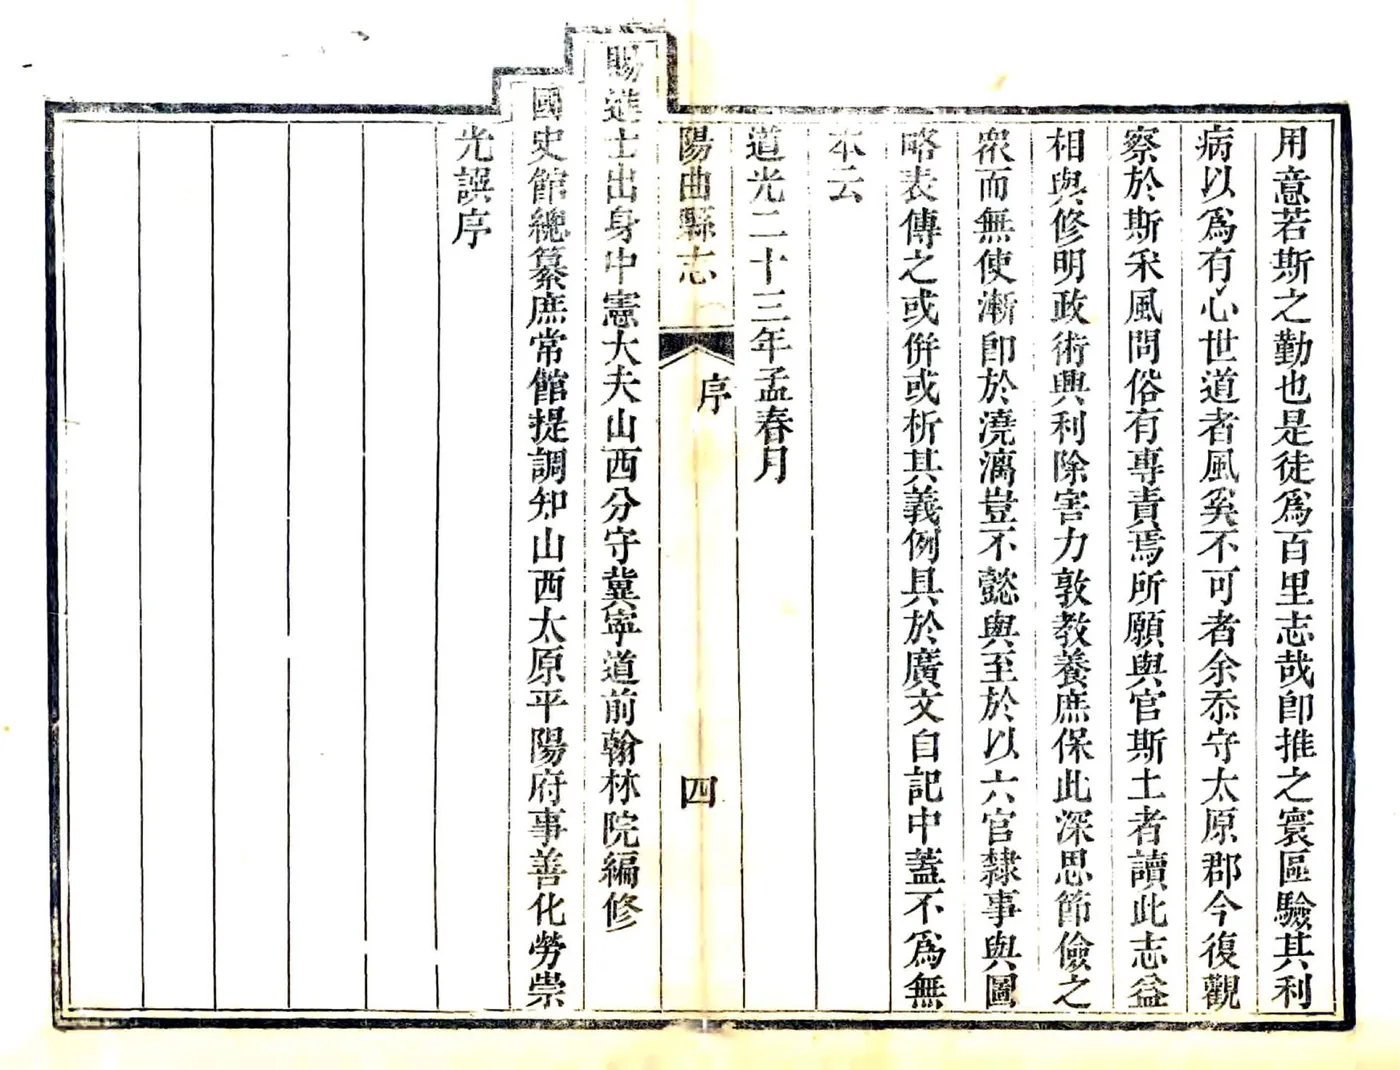 用意若斯之勤也是徒爲百里志哉卽推之寰區驗其利
病以爲有心世道者風奚不可者余忝守太原郡今復觀
察於斯釆風問俗有專責焉所願與官斯土者讀此志益
相與修明政術興利除害力敦教養庶保此深思節儉之
衆而無使漸卽於澆漓豈不懿與至於以六官隸事與圖
略表傳之或併或析其義例具於廣文自記中蓋不爲無
本云
道光二十三年孟春月
陽曲縣志
序
四
賜進士出身中憲大夫山西分守冀寧道前翰林院編修
國史館總纂庶常館提調知山西太原平陽府事善化勞崇
光譔序